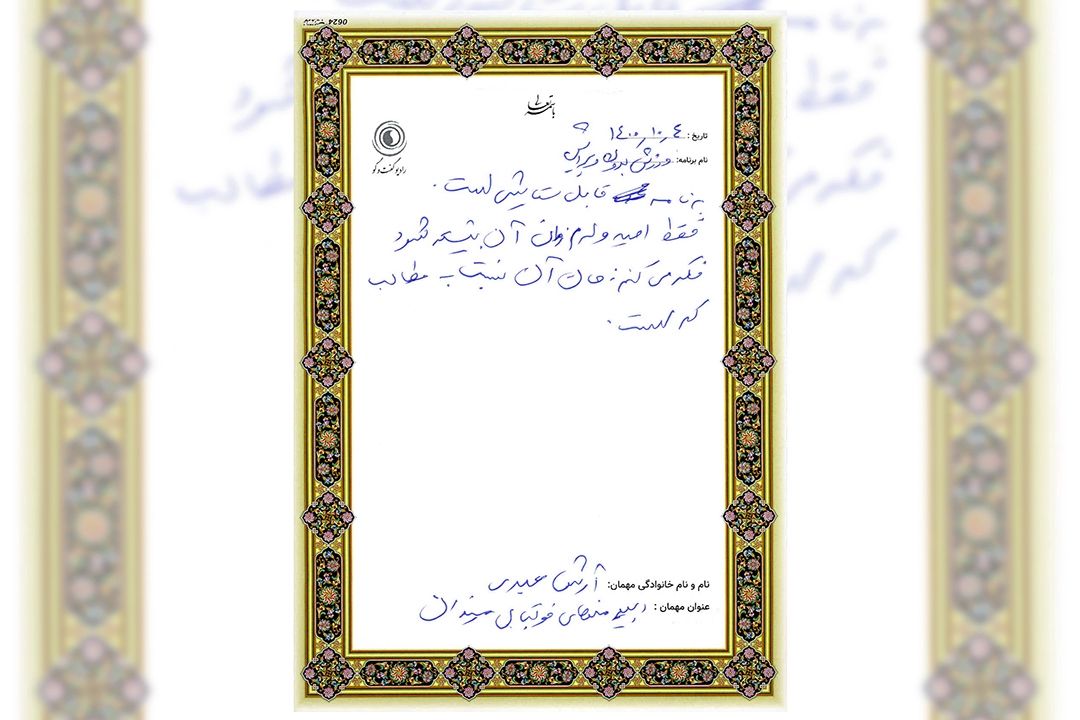 باسمه تعالی
تاریخ: ۱۴۰۰,۱۰,۴
رادیو گفت و گو
نام برنامه: ورزش بدون ویرایش
برنامه قابل ستایشی است.
فقط امیدوارم زمان آن بیشتر شود
فکر می کنم زمان آن نسبت به مطالب
کم است.
نام و نام خانوادگی مهمان: آرش
عنوان مهمان: فوتبال